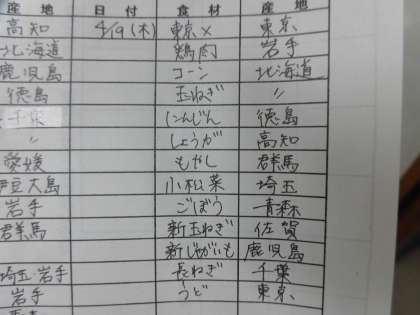 産地 日付 食材 産地
高知 4/19(木) 東京× 東京
北海道 鶏肉 岩手
鹿児島 コーン 北海道
徳島 玉ねぎ 〃
千葉 にんじん 徳島
〃 しょうが 高知
愛媛 もやし 群馬
伊豆大島 小松菜 埼玉
岩手 ごぼう 青森
群馬 新玉ねぎ 佐賀
新じゃがいも 鹿児島
埼玉・岩手 長ねぎ 千葉
岩手 うど 東京